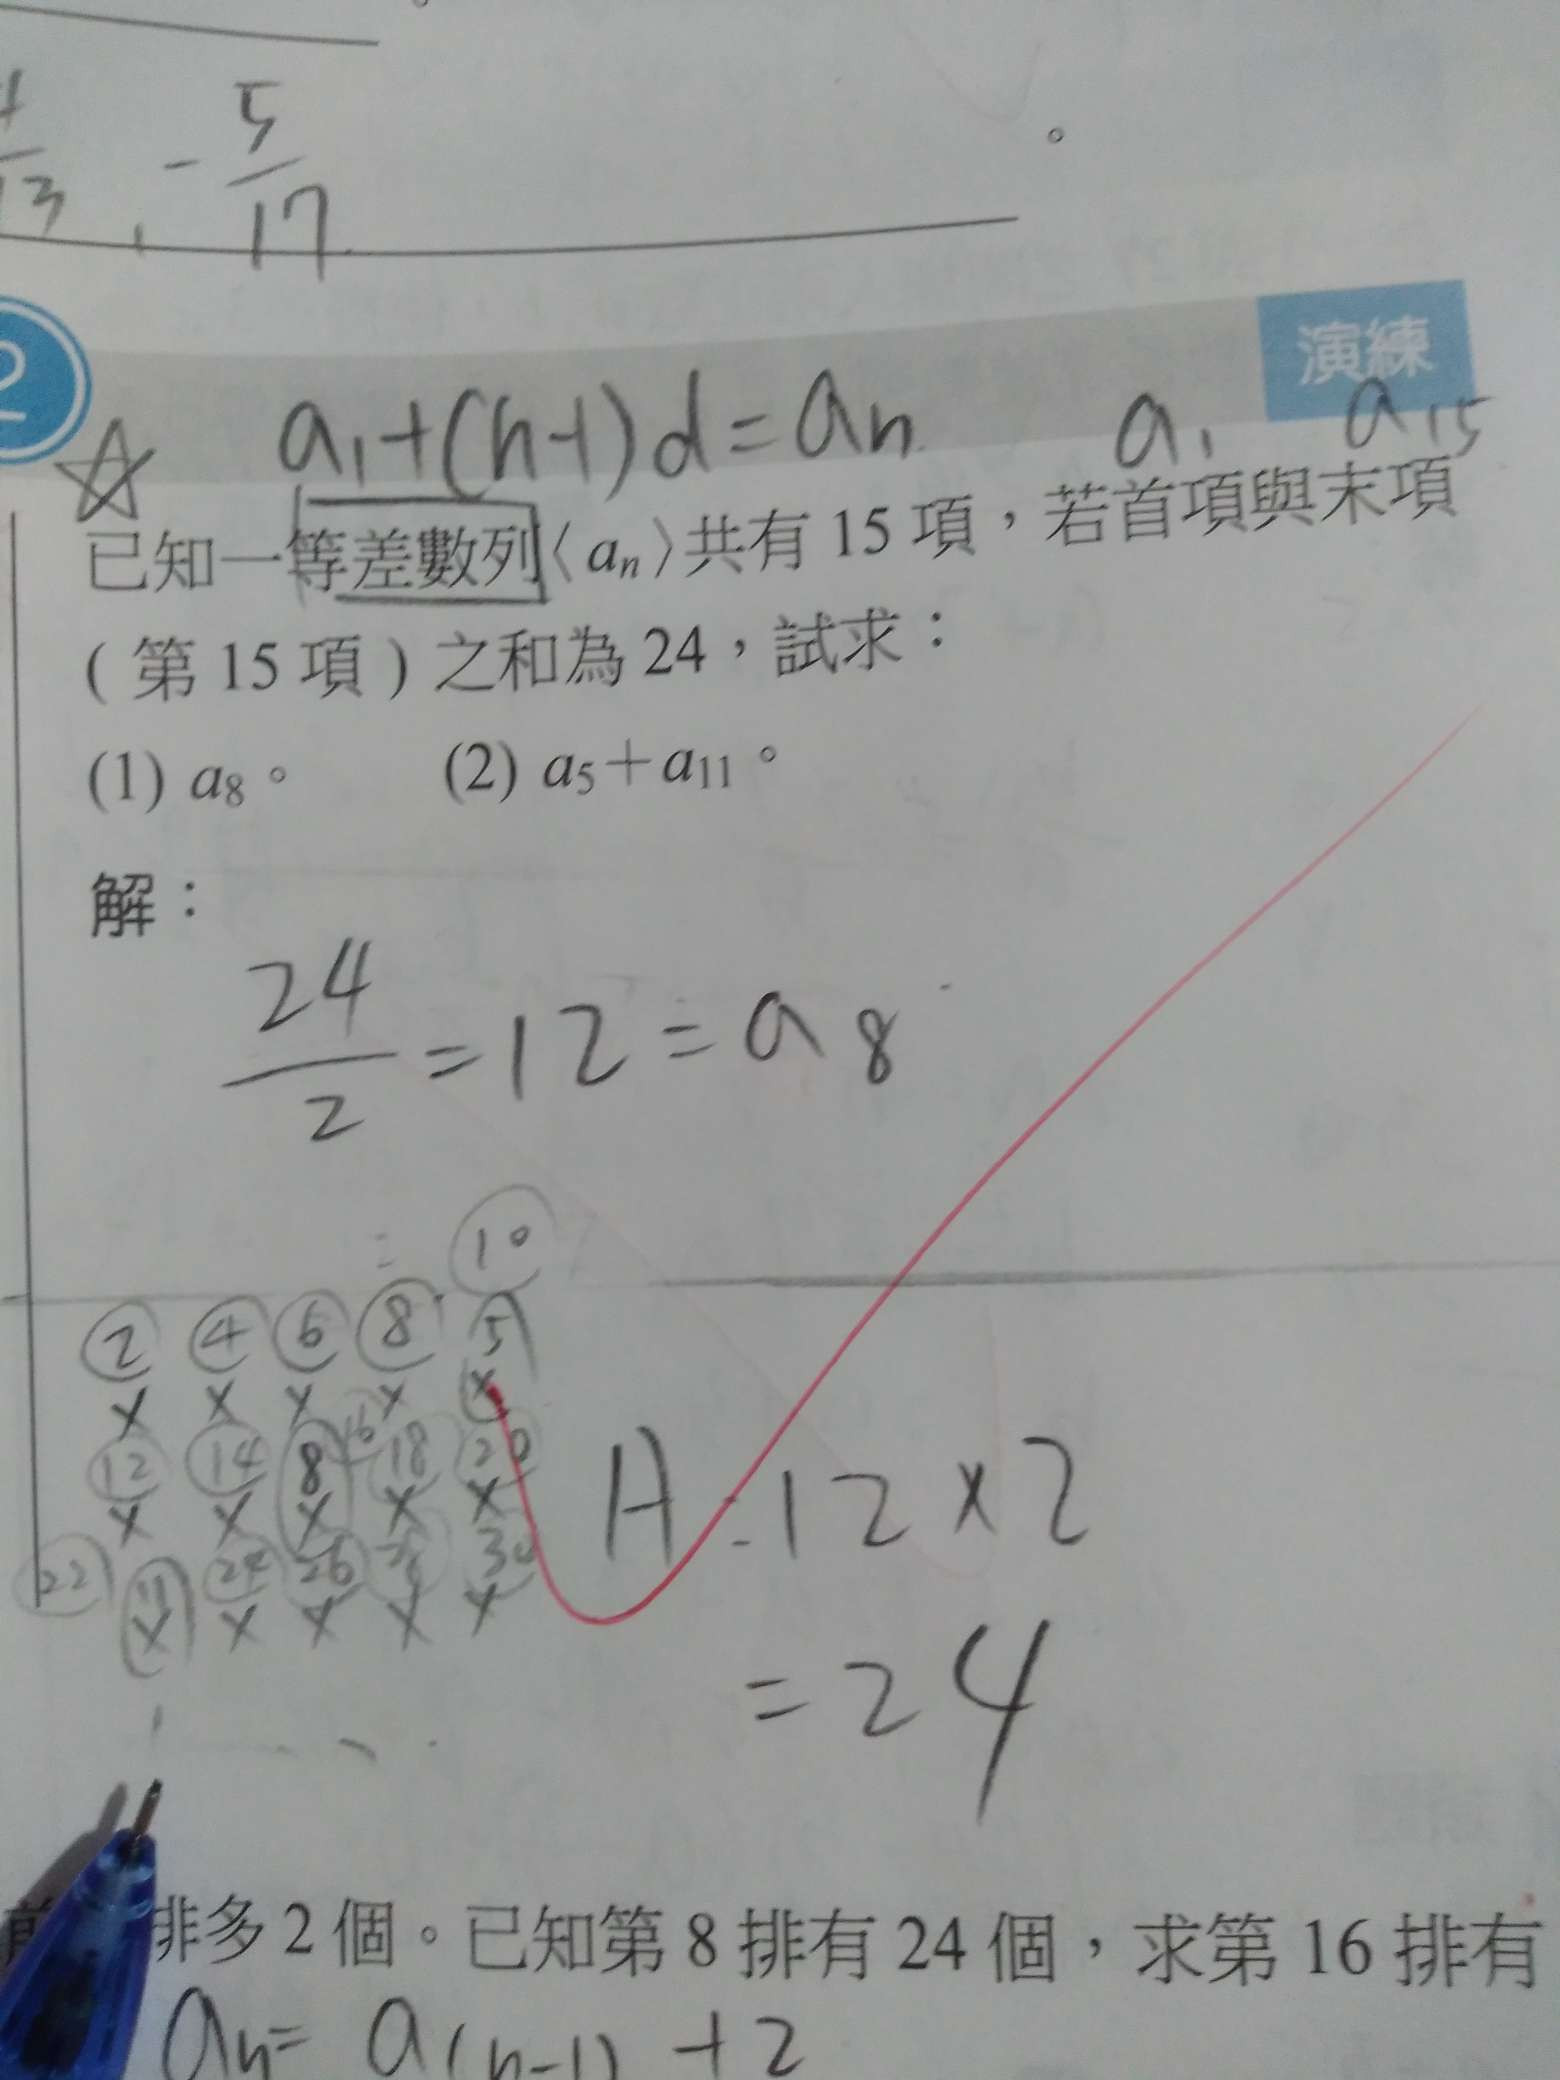 13, - 5/17 。
2 演練
a₁+(n-1)d=aₙ a₁ a₁₅
已知一等差數列〈aₙ〉共有 15 項，若首項與末項
(第 15 項) 之和為 24，試求：
(1) a₈。 (2) a₅＋a₁₁。
解：
24/2 = 12 = a₈
10
2 4 6 8 5
x x x x x
12 14 8 16 18 20
x x x x x
22 11 24 26 30
x x x x x
12 x 2
= 24
排多 2 個。已知第 8 排有 24 個，求第 16 排有
aₙ= a(n-1) +2